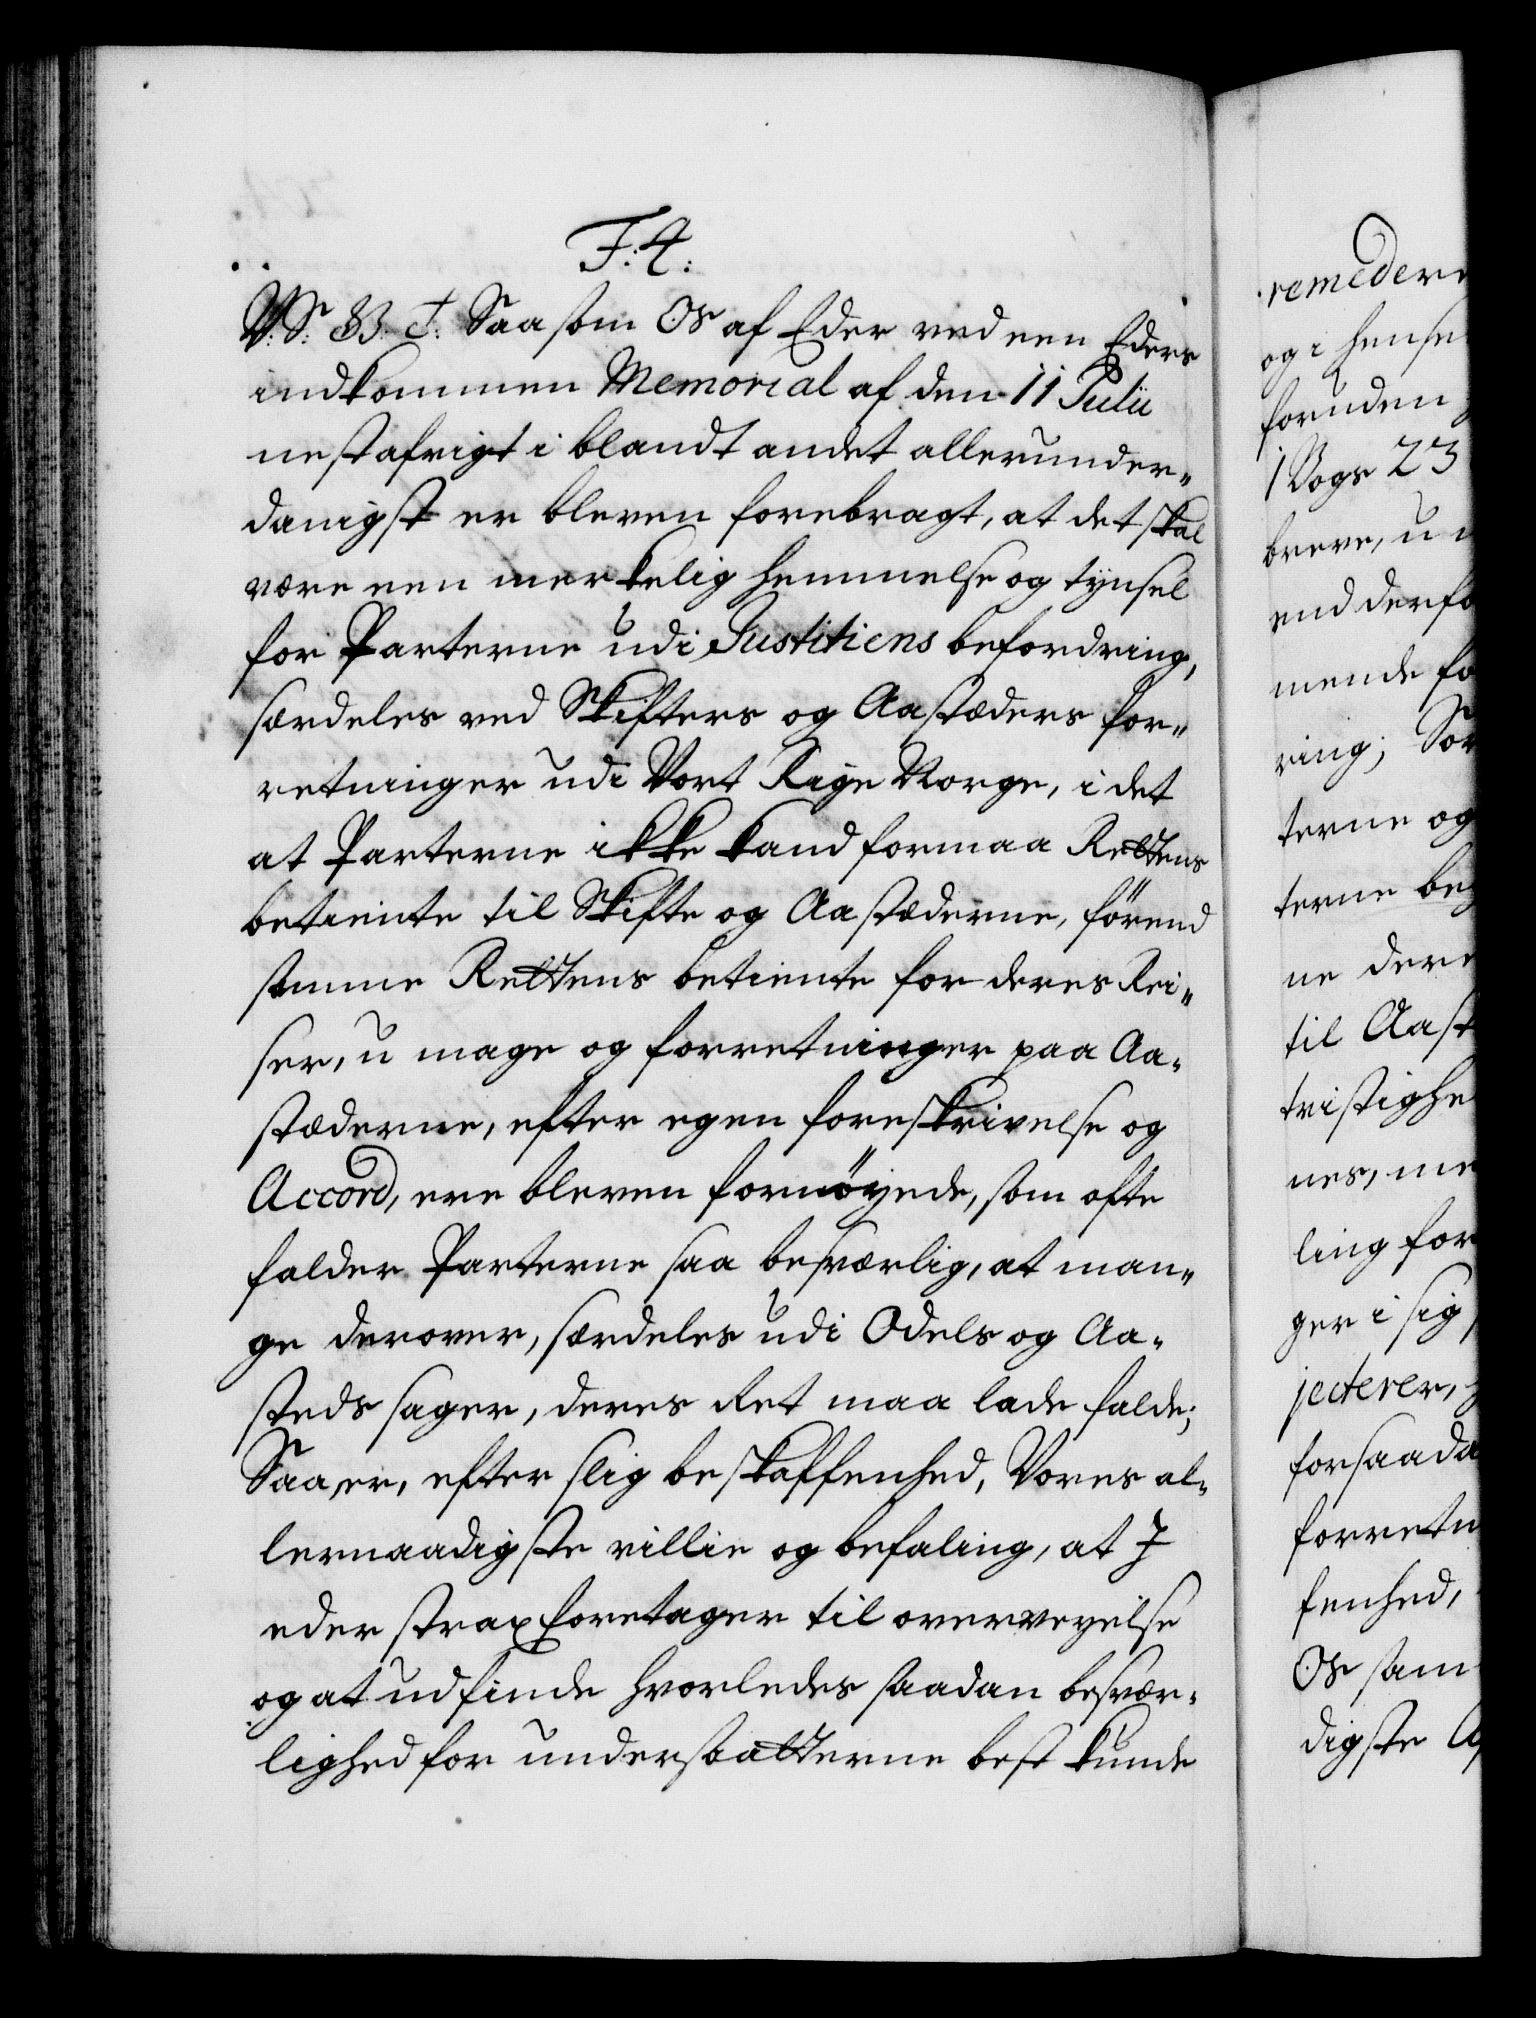 F. 4.
V. S. B. T. Saasom Os af Eder ved een Eders
indkommen Memorial af den 11 Julii
nestafvigt i blandt andet allerunder„
danigst er bleven forebragt, at det skal
være een merkelig hemmelse og tyngsel
for Parterne udi Justitiens befordring,
særdeles ved Skifters og Aastæders for„
retninger udi Vort Rige Norge, i det
at Parterne ikke kand formaa Rettens
betiente til Skifte og Aastæderne, førend
samme Rettens betiente for deres Rei„
ser, umage og forretninger paa Aa„
stæderne, efter egen foreskrivelse og
Accord, ere bleven fornøyede, som ofte
falder Parterne saa besværlig, at man„
ge derover, særdeles udi Odels og Aa„
steds sager, deres Ret maa lade falde;
Saa er, efter slig beskaffenhed, Vores al„
lernaadigste villie og befaling, at I
eder strax foretager til overveyelse
og at udfinde hvorledes saadan besvær„
lighed for undersaatterne best kunde
remedere
og i hense
foruden
1 Bogs 23
breve, u
end derfo
mende fo
ring; For
terne og
terne beg
ne dere
til Aast
tvistighe
nes, me
ling for
ger i sig
jecterer,
forsaada
forretn
fenhed,
Os sam
digste